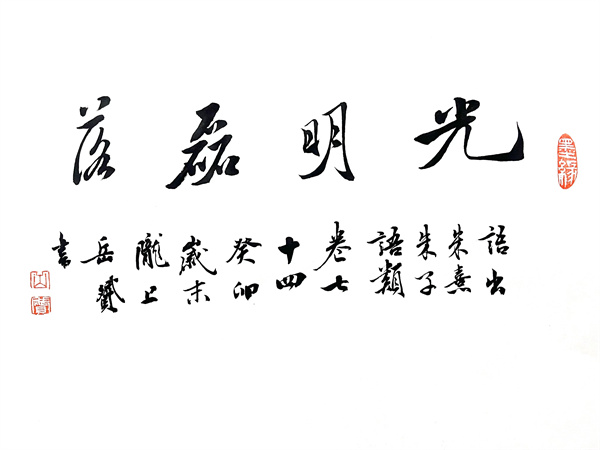 光明磊落
語出
朱熹
朱子
語類
卷七
十四
癸卯
歲末
隴上
岳贇
書
墨缘